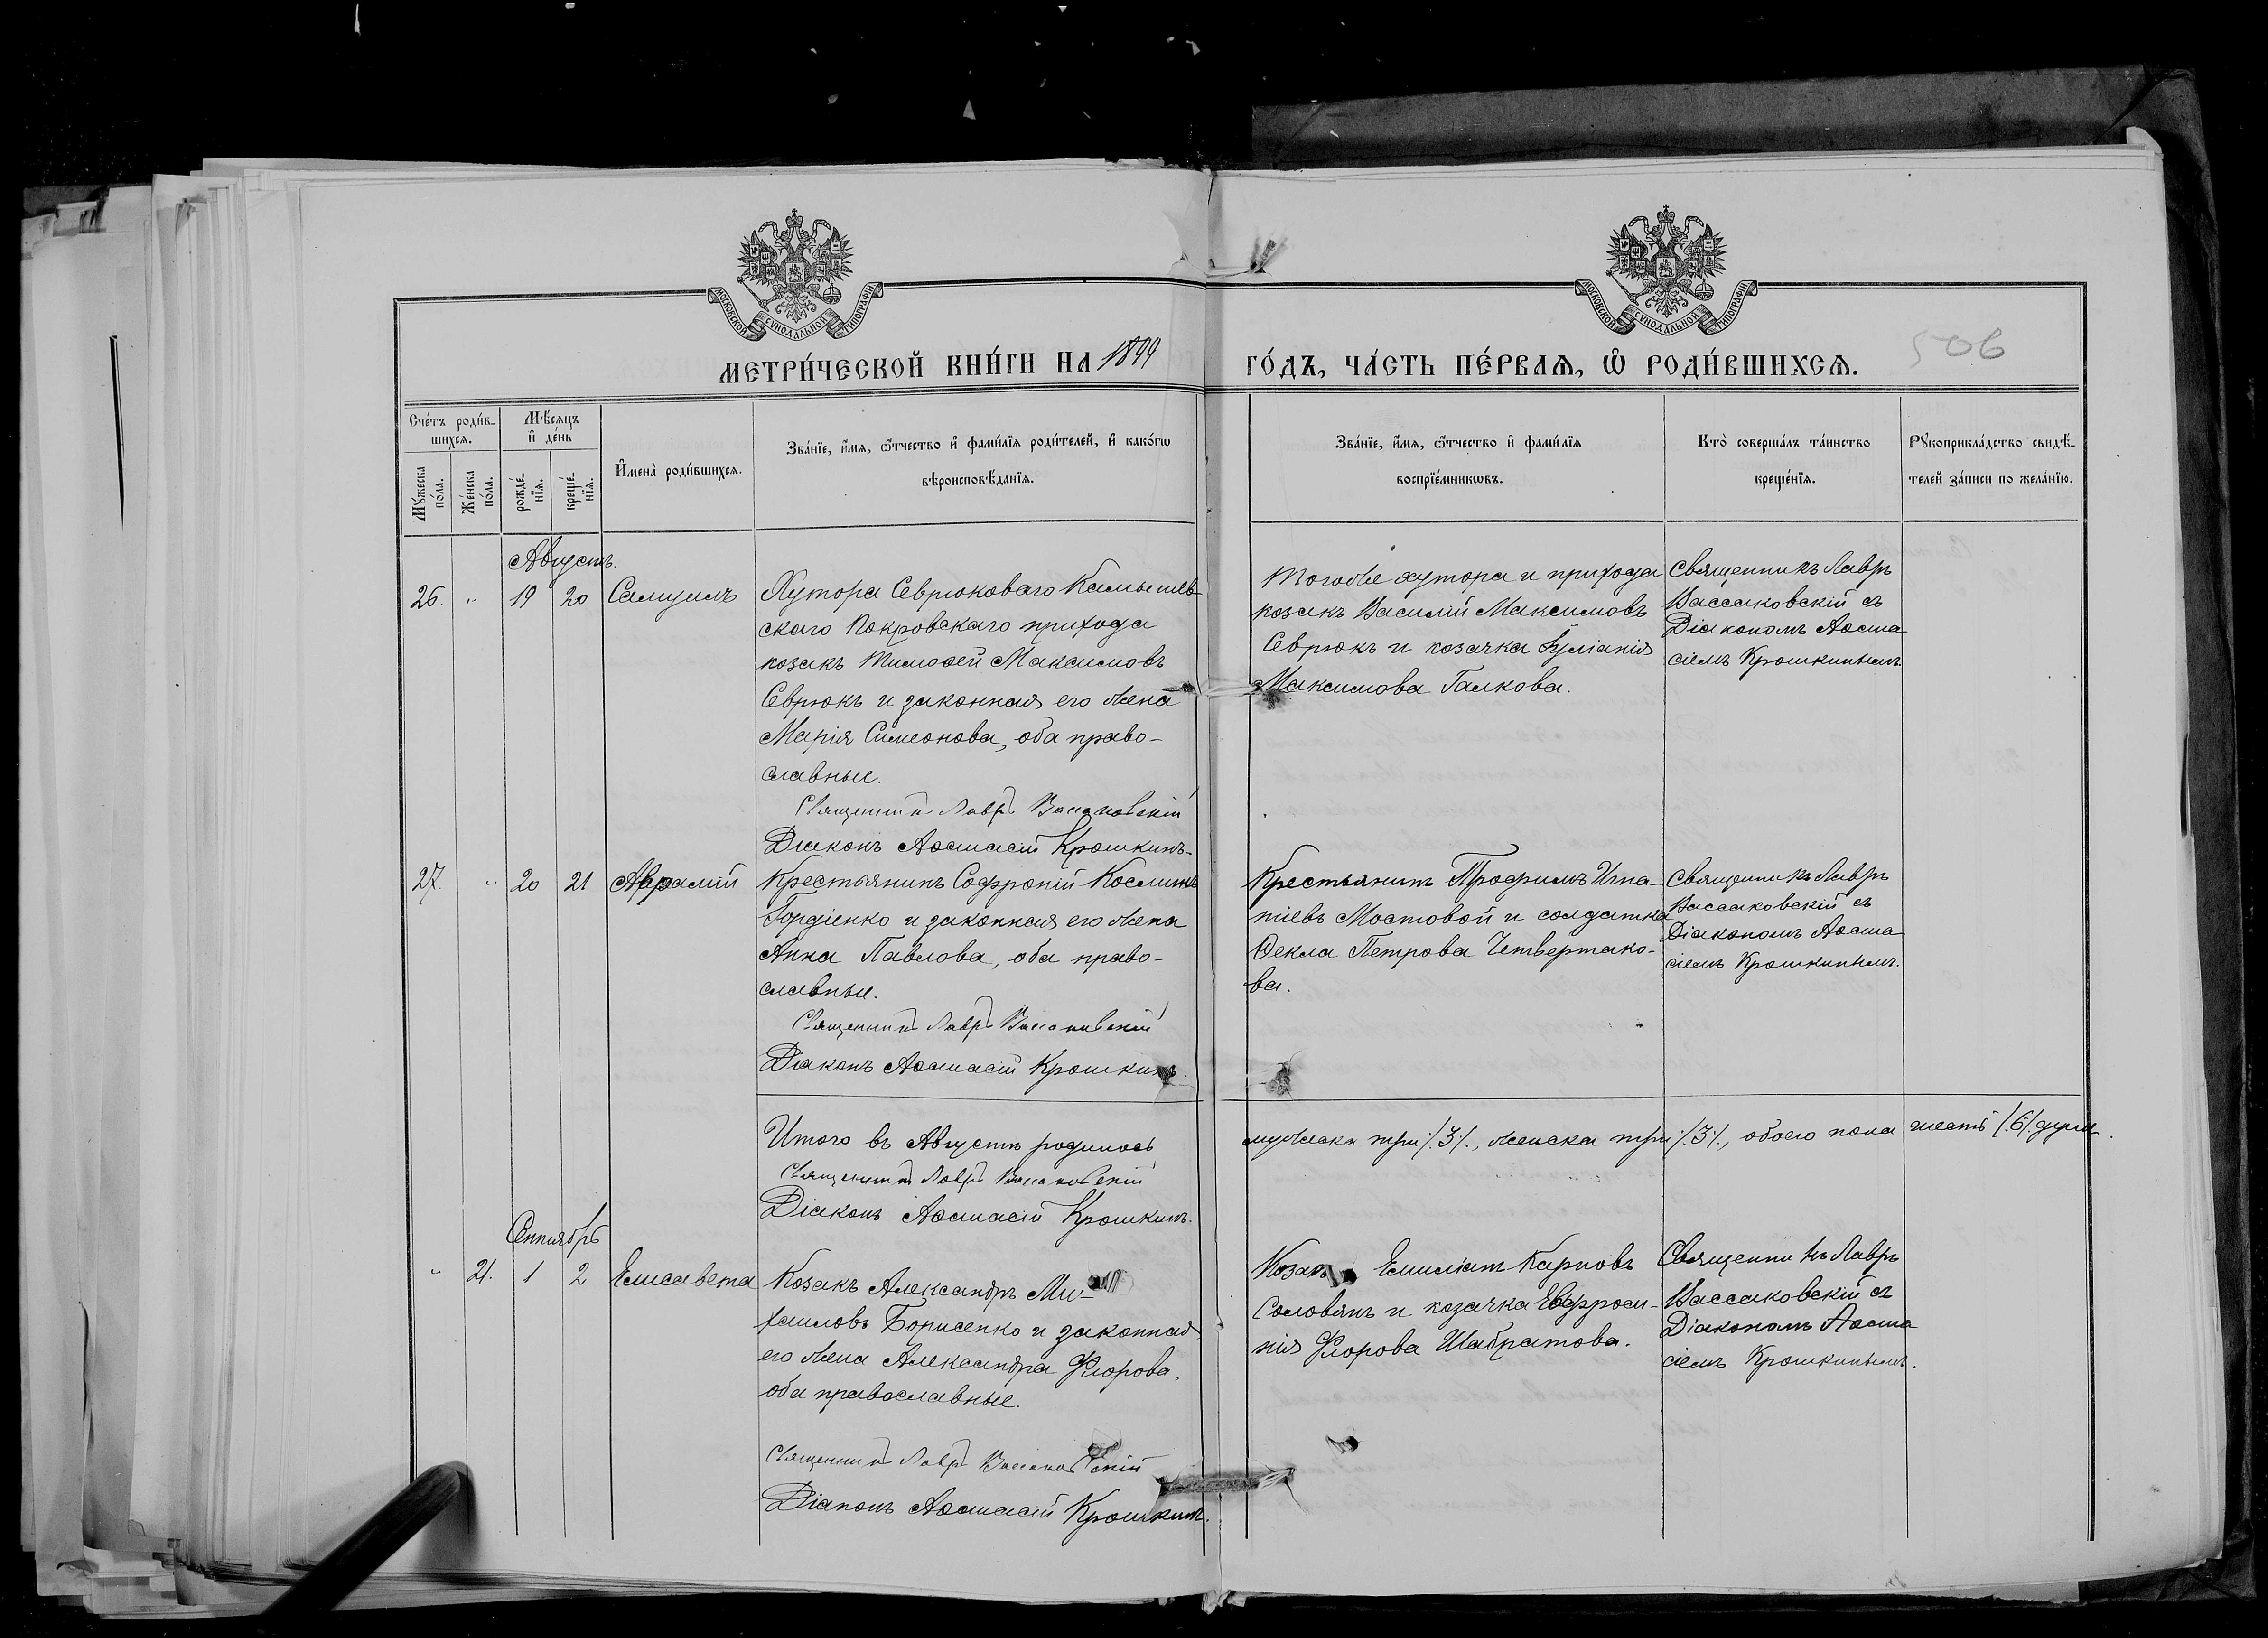 МОСКОВСКОЙ СѴНОДАЛЬНОЙ ТИПОГРАФІИ
МОСКОВСКОЙ СѴНОДАЛЬНОЙ ТИПОГРАФІИ
МЕТРИ́ЧЕСКОЙ КНИ́ГИ НА 1899 ГО́ДЪ, ЧА́СТЬ ПЕ́РВАѦ, Ѽ РОДИ́ВШИХСѦ.
506
Сче́тъ роди́в-
шихсѧ.
Мѣ́сяцъ
и҆ де́нь
Мꙋ́жеска
по́ла.
Же́нска
по́ла.
рожде́-
нїѧ.
креще́-
нїѧ.
И҆мена̀ роди́вшихсѧ.
Зва́нїе, и҆́мѧ, ѻ҆́тчество и҆ фами́лїѧ роди́телей, и҆ како́гѡ
вѣроисповѣ́данїѧ.
Зва́нїе, и҆́мѧ, ѻ҆́тчество и҆ фами́лїѧ
воспрїе́мникѡвъ.
Кто̀ соверша́лъ та́инство
креще́нїѧ.
Рꙋкоприкла́дство свидѣ́-
телей за́писи по жела́нїю.
Августъ.
26. " 19 20 Самуилъ
Хутора Севрюковаго Камышев-
скаго Покровскаго прихода
козакъ Тимоѳей Максимовъ
Севрюкъ и законная его жена
Марія Симеонова, оба право-
славные.
Священникъ Лавръ Вассаковскій
Діаконъ Аѳанасій Крошкинъ.
Тогоже хутора и прихода
козакъ Василій Максимовъ
Севрюкъ и козачка Іуліанія
Максимова Галкова.
Священникъ Лавръ
Вассаковскій съ
Діакономъ Аѳана
сіемъ Крошкинымъ
27. " 20 21 Авраамій
Крестьянинъ Софроній Косминъ
Гордіенко и законная его жена
Анна Павлова, оба право-
славные.
Священникъ Лавръ Вассаковскій
Діаконъ Аѳанасій Крошкинъ.
Крестьянинъ Трофимъ Игна-
тіевъ Мостовой и солдатка
Ѳекла Петрова Четвертако-
ва.
Священникъ Лавръ
Вассаковскій съ
Діакономъ Аѳана
сіемъ Крошкинымъ.
Итого въ Августѣ родилось мужеска три /.3/., женска три /.3/., обоего пола шесть /.6/. душъ.
Священникъ Лавръ Вассаковскій
Діаконъ Аѳанасій Крошкинъ.
Сентябрь
" 21. 1 2 Елисавета
Козакъ Александръ Ми-
хаиловъ Борисенко и законная
его жена Александра Флорова,
оба православные.
Священникъ Лавръ Вассаковскій
Діаконъ Аѳанасій Крошкинъ.
Козакъ Емиліанъ Карповъ
Соловянъ и козачка Евфроси-
нія Флорова Шабратова.
Священникъ Лавръ
Вассаковскій съ
Діакономъ Аѳана
сіемъ Крошкинымъ.